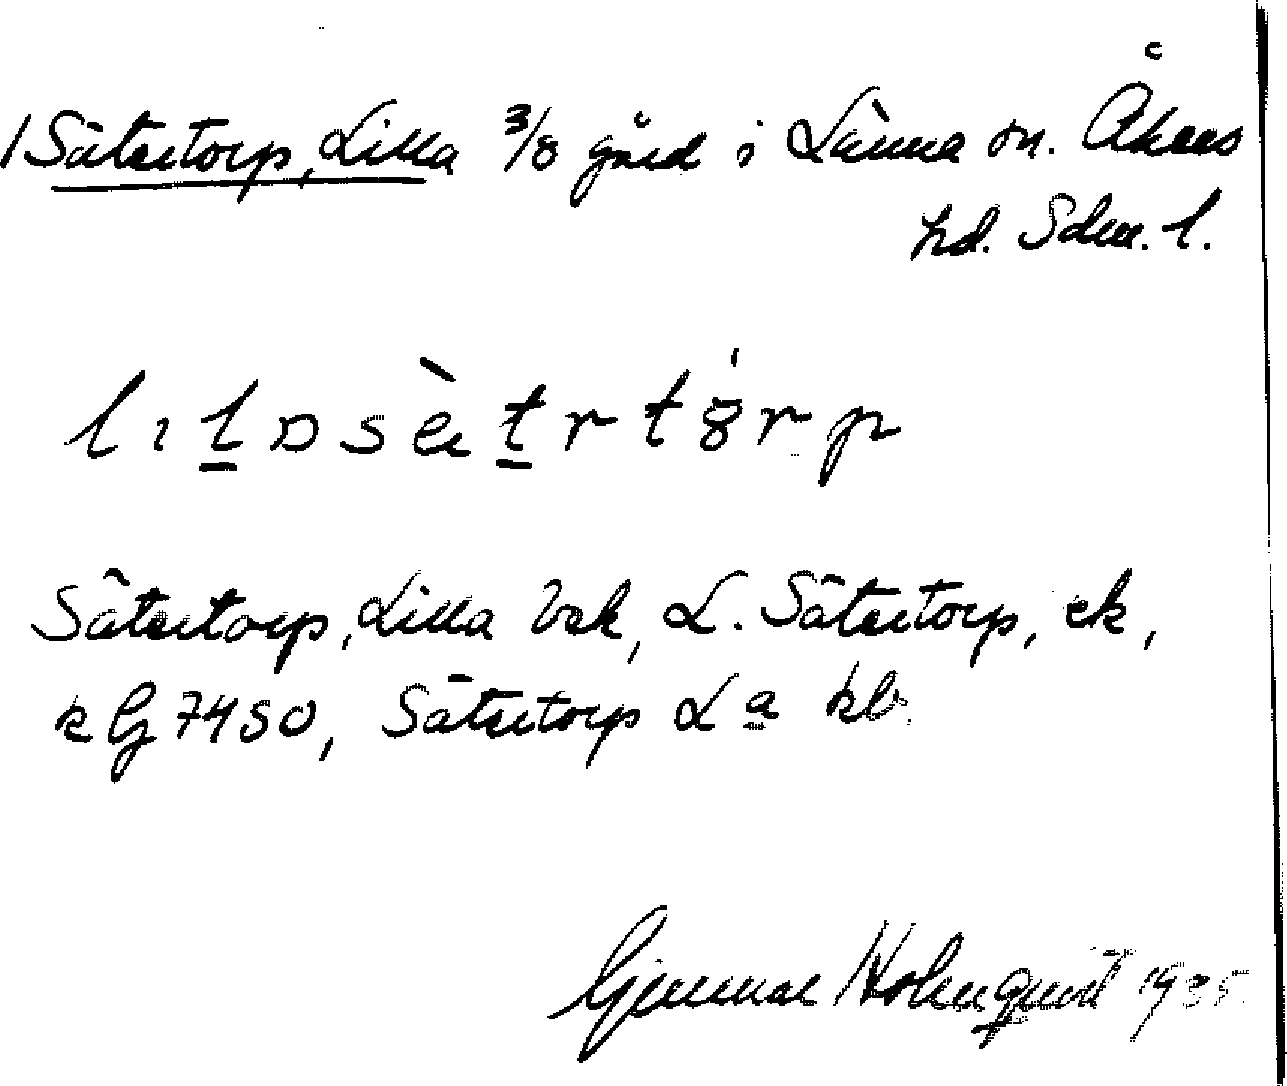 Sätertorp, Lilla 3/8 gård i Länna sn. Åkers
hd. Sdm. l.
Sätertorp, Lilla Vsk, L. Sätertorp, ek,
k Gj 7450, Sätertorp La kb.
Gunnar Holmquist 1935.